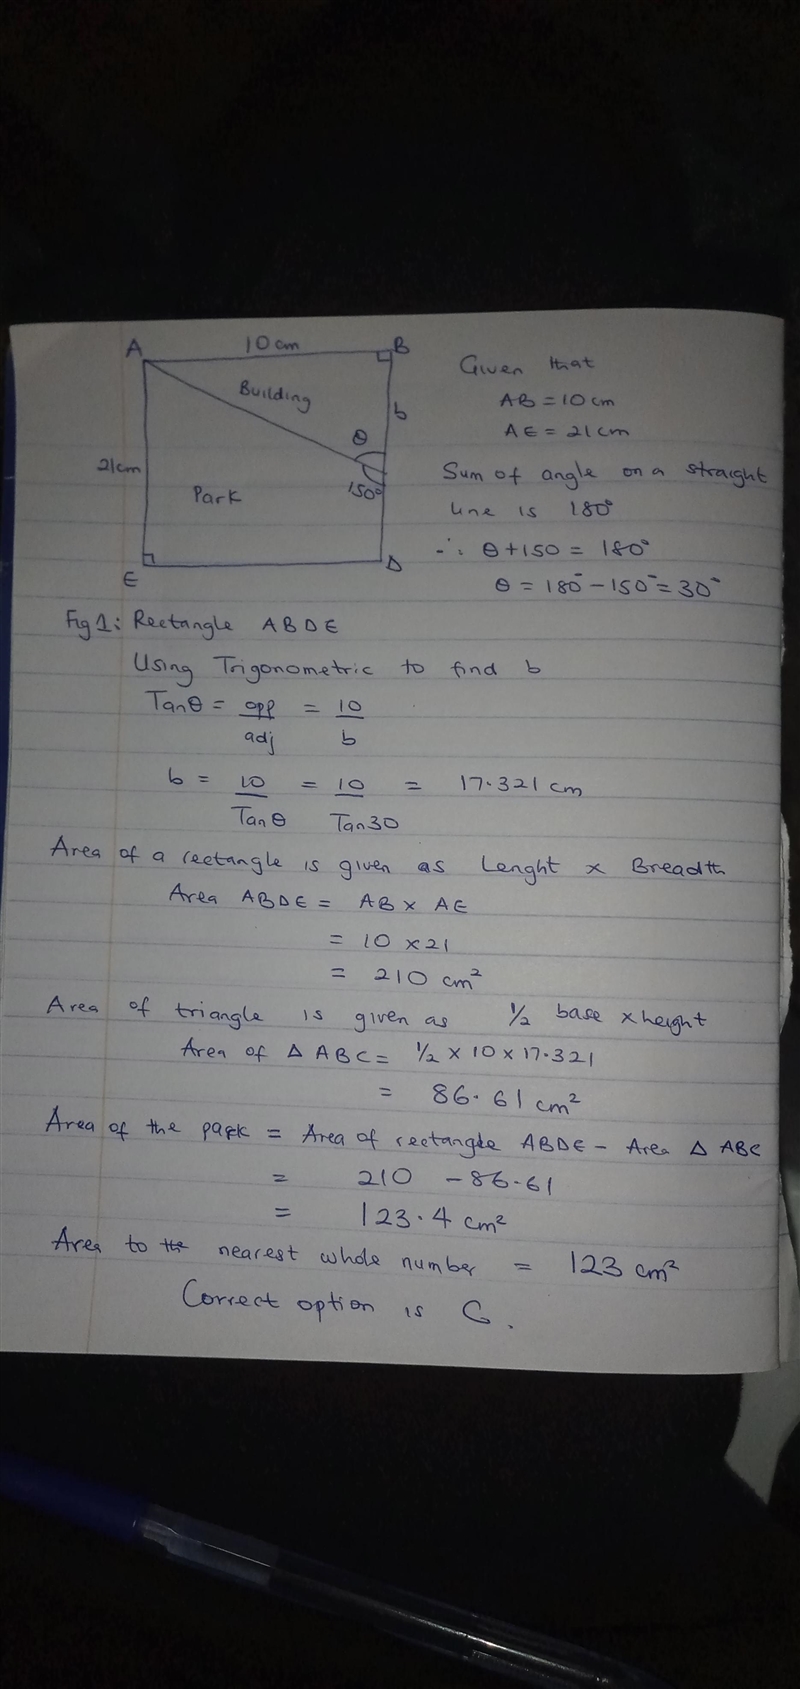 A 10cm B
Building
b
θ
21cm
Park
150°
E D
Given that
AB = 10cm
AE = 21cm
Sum of angle on a straight
line is 180°
∴ θ + 150 = 180°
θ = 180° - 150° = 30°
Fig 1: Rectangle ABDE
Using Trigonometric to find b
Tanθ = opp/adj = 10/b
b = 10/Tanθ = 10/Tan30 = 17.321 cm
Area of a rectangle is given as Lenght x Breadth
Area ABDE = AB x AE
= 10 x 21
= 210 cm²
Area of triangle is given as ½ base x height
Area of Δ ABC = ½ x 10 x 17.321
= 86.61 cm²
Area of the park = Area of rectangle ABDE - Area Δ ABC
= 210 - 86.61
= 123.4 cm²
Area to the nearest whole number = 123 cm²
Correct option is C.